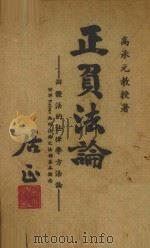 高承元教授著
正負法論
——辯證法的法律學方法論——
居正